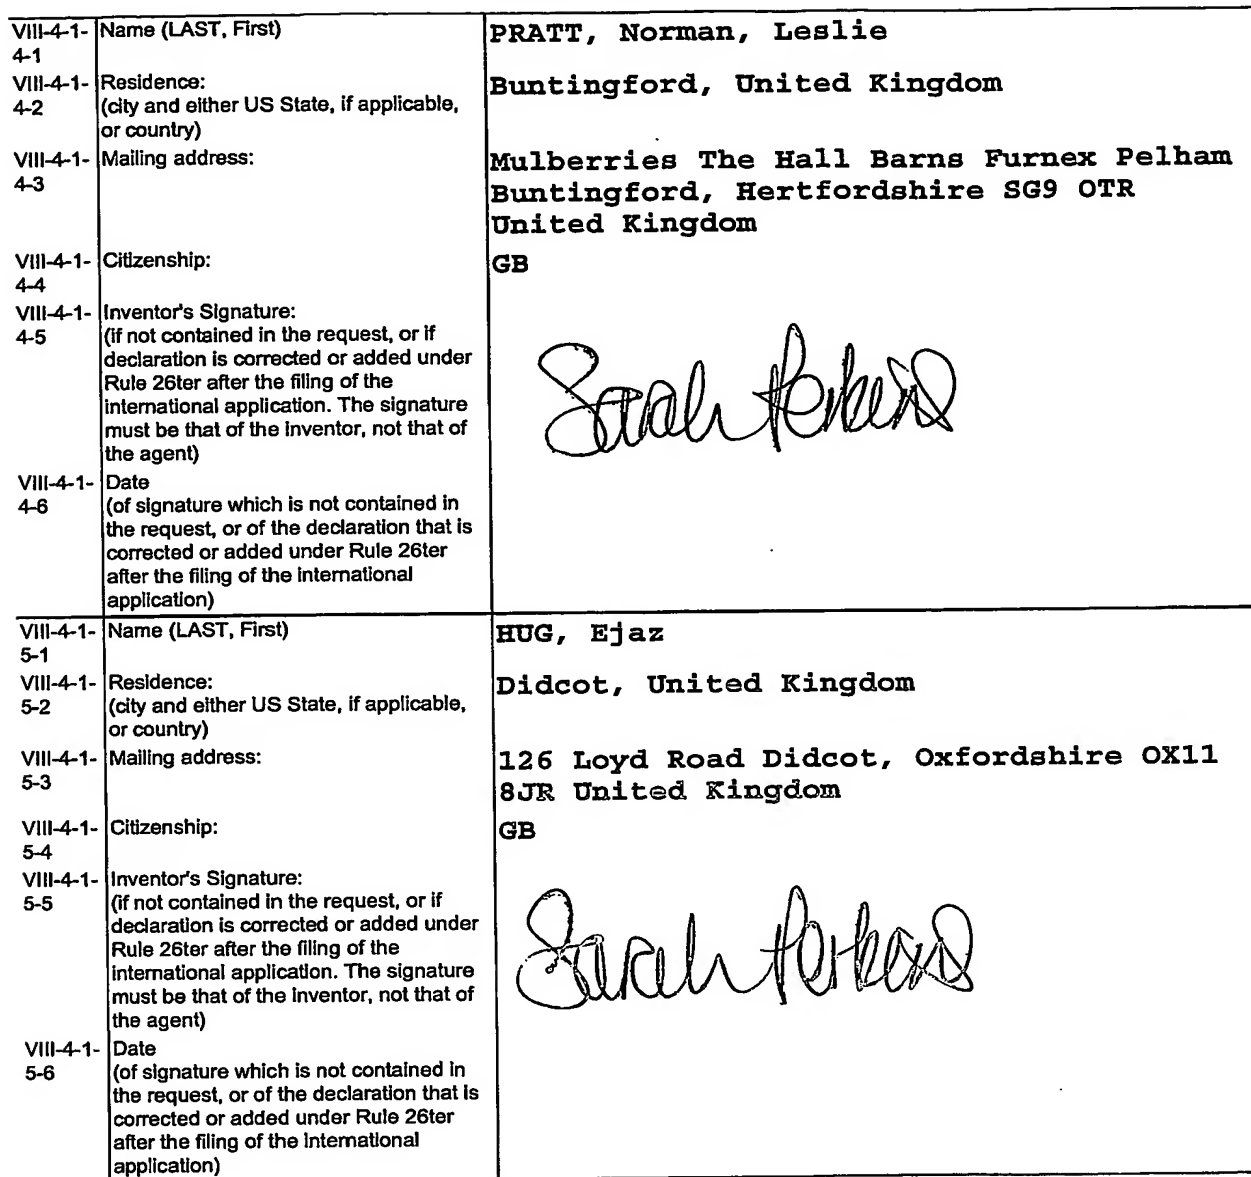 VIII-4-1- Name (LAST, First) PRATT, Norman, Leslie
4-1
VIII-4-1- Residence: Buntingford, United Kingdom
4-2 (city and either US State, if applicable,
or country)
VIII-4-1- Mailing address: Mulberries The Hall Barns Furnex Pelham
4-3 Buntingford, Hertfordshire SG9 OTR
United Kingdom
VIII-4-1- Citizenship: GB
4-4
VIII-4-1- Inventor's Signature:
4-5 (if not contained in the request, or if
declaration is corrected or added under
Rule 26ter after the filing of the
international application. The signature
must be that of the inventor, not that of
the agent)
Sarah Perkins
VIII-4-1- Date
4-6 (of signature which is not contained in
the request, or of the declaration that is
corrected or added under Rule 26ter
after the filing of the international
application)
VIII-4-1- Name (LAST, First) HUG, Ejaz
5-1
VIII-4-1- Residence: Didcot, United Kingdom
5-2 (city and either US State, if applicable,
or country)
VIII-4-1- Mailing address: 126 Loyd Road Didcot, Oxfordshire OX11
5-3 8JR United Kingdom
VIII-4-1- Citizenship: GB
5-4
VIII-4-1- Inventor's Signature:
5-5 (if not contained in the request, or if
declaration is corrected or added under
Rule 26ter after the filing of the
international application. The signature
must be that of the inventor, not that of
the agent)
Sarah Perkins
VIII-4-1- Date
5-6 (of signature which is not contained in
the request, or of the declaration that is
corrected or added under Rule 26ter
after the filing of the international
application)